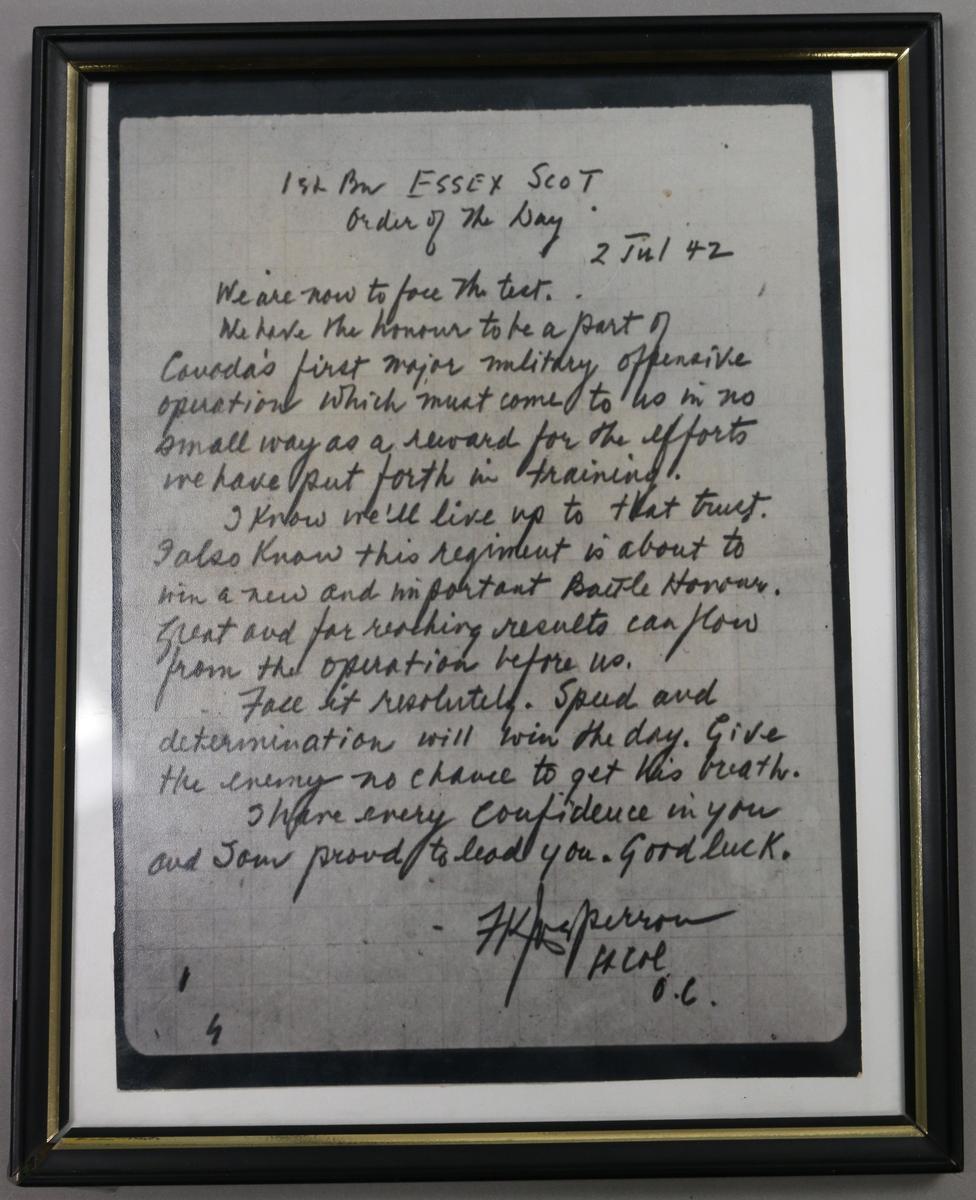 1st Bn ESSEX SCOT
Order of The Day
2 Jul 42
We are now to face The test.
We have the honour to be a part of
Canada's first major military offensive
operation which must come to us in no
small way as a reward for the efforts
we have put forth in training.
I Know we'll live up to that trust.
I also Know this regiment is about to
win a new and important Battle Honour.
Great and far reaching results can flow
from the operation before us.
Face it resolutely. Speed and
determination will win the day. Give
the enemy no chance to get his breath.
I have every confidence in you
and I am proud to lead you. Good luck.
FK Jasperson
Lt Col
O.C.